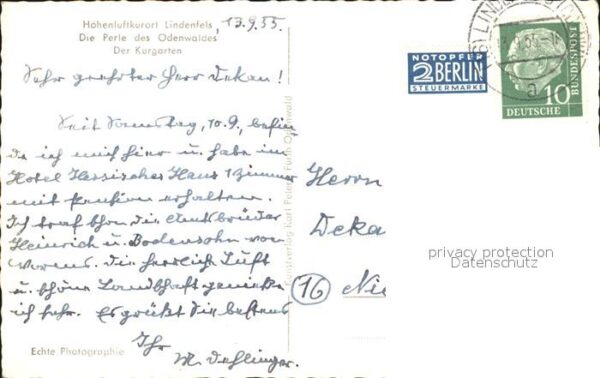 Höhenluftkurort Lindenfels, 13.9.55.
Die Perle des Odenwaldes
Der Kurgarten
Sehr geehrter Herr Dekan!
Seit Samstag, 10.9., befin
de ich mich hier u. habe im
Hotel Hessisches Haus 1 Zimmer
mit Pension erhalten.
Ich traf schon die Amtsbrüder
Heinrich u. Bodensohn von
Worms. Die herrliche Luft
u. schöne Landschaft genieße
ich sehr. Es grüßt Sie bestens
Ihr
M. Dehlinger.
Echte Photographie
Kunstverlag Karl Peter, Fürth Odenwald
NOTOPFER
2 BERLIN
STEUERMARKE
LINDENFELS
a
DEUTSCHE
BUNDESPOST
10
Herrn
Deka
(16) Nie
privacy protection
Datenschutz